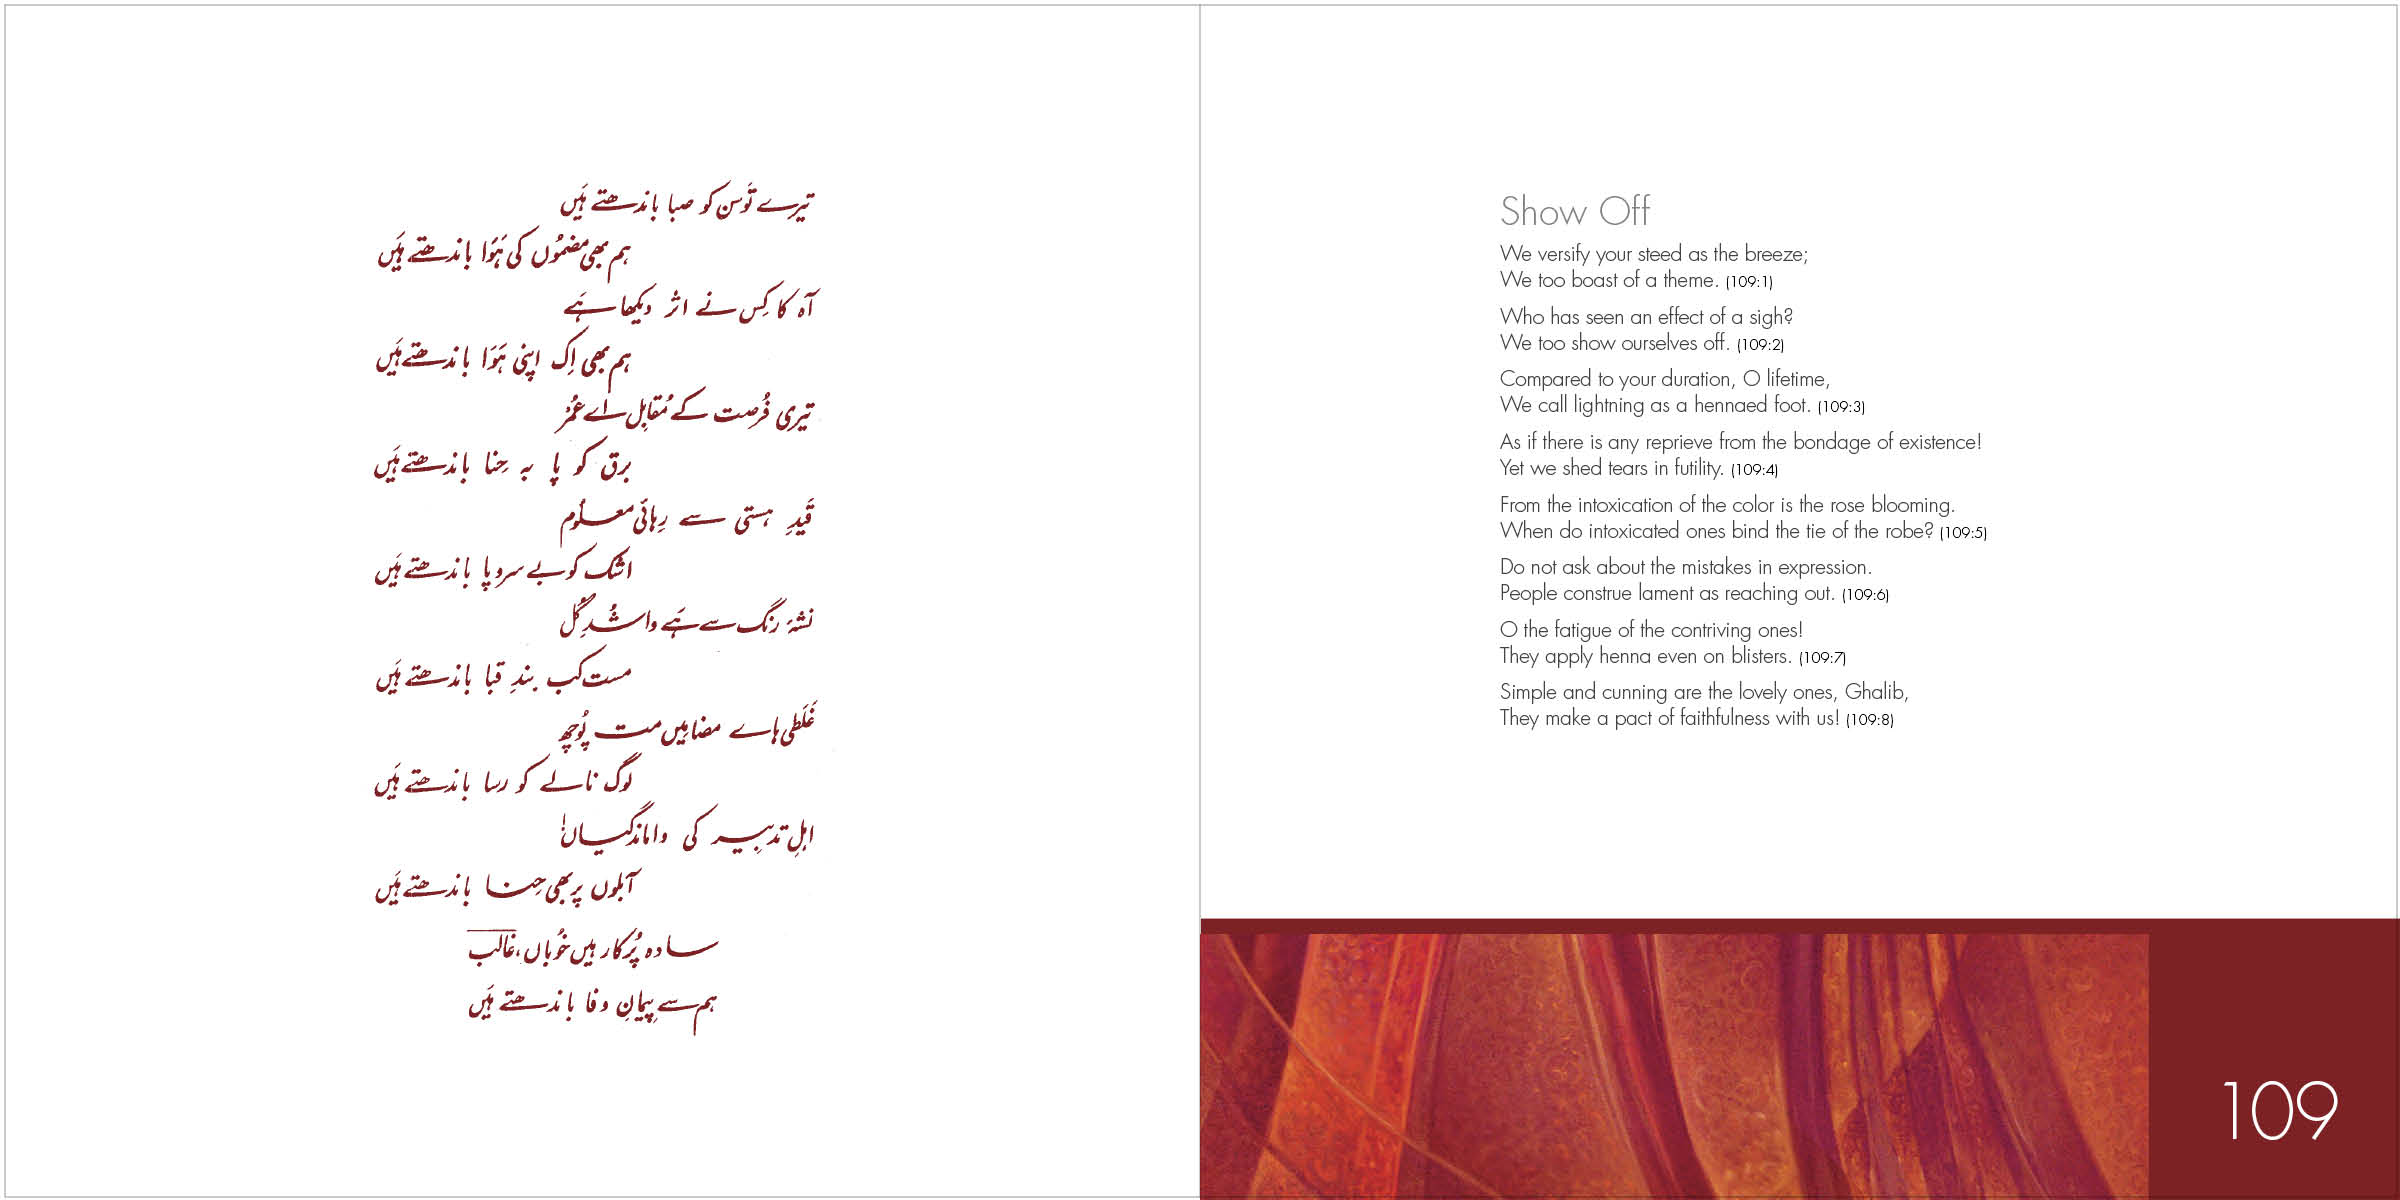 تیرے تَوسن کو صبا باندھتے ہَیں
ہم بھی مضمُوں کی ہَوَا باندھتے ہَیں
آہ کا کِس نے اثر دیکھا ہَے
ہم بھی اِک اپنی ہَوَا باندھتے ہَیں
تیری فُرصت کے مُقابِل اے عُمْر
برق کو پا بہ حِنا باندھتے ہَیں
قَیدِ ہستی سے رِہائی معلُوم
اشک کو بے سروپا باندھتے ہَیں
نشۂ رنگ سے ہَے واشُدِ گُل
مست کب بندِ قبا باندھتے ہَیں
غَلَطی ہاے مضامِیں مت پُوچھ
لوگ نالے کو رسا باندھتے ہَیں
اہلِ تدبِیر کی واماندگیاں!
آبلوں پر بھی حِنا باندھتے ہَیں
سادہ پُرکار ہیں خُوباں، غالب
ہم سے پیمانِ وفا باندھتے ہَیں
Show Off
We versify your steed as the breeze;
We too boast of a theme. (109:1)
Who has seen an effect of a sigh?
We too show ourselves off. (109:2)
Compared to your duration, O lifetime,
We call lightning as a hennaed foot. (109:3)
As if there is any reprieve from the bondage of existence!
Yet we shed tears in futility. (109:4)
From the intoxication of the color is the rose blooming.
When do intoxicated ones bind the tie of the robe? (109:5)
Do not ask about the mistakes in expression.
People construe lament as reaching out. (109:6)
O the fatigue of the contriving ones!
They apply henna even on blisters. (109:7)
Simple and cunning are the lovely ones, Ghalib,
They make a pact of faithfulness with us! (109:8)
109